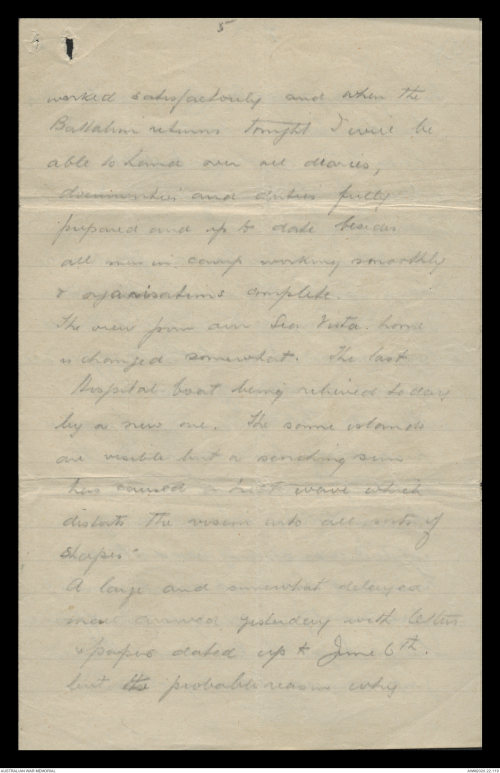 5
worked satisfactorily and when the
Battalion returns tonight I will be
able to hand over all diaries,
documents and duties fully
prepared and up to date besides
all men in camp working smoothly
& organisations complete.
The view from our Sea Vista home
is changed somewhat. The last
Hospital boat being relieved today
by a new one. The same islands
are visible but a scorching sun
has caused a heat wave which
distorts the vision into all sorts of
shapes.
A large and somewhat delayed
mail arrived yesterday with letters
& papers dated up to June 6th.
but the probable reason why
AUSTRALIAN WAR MEMORIAL